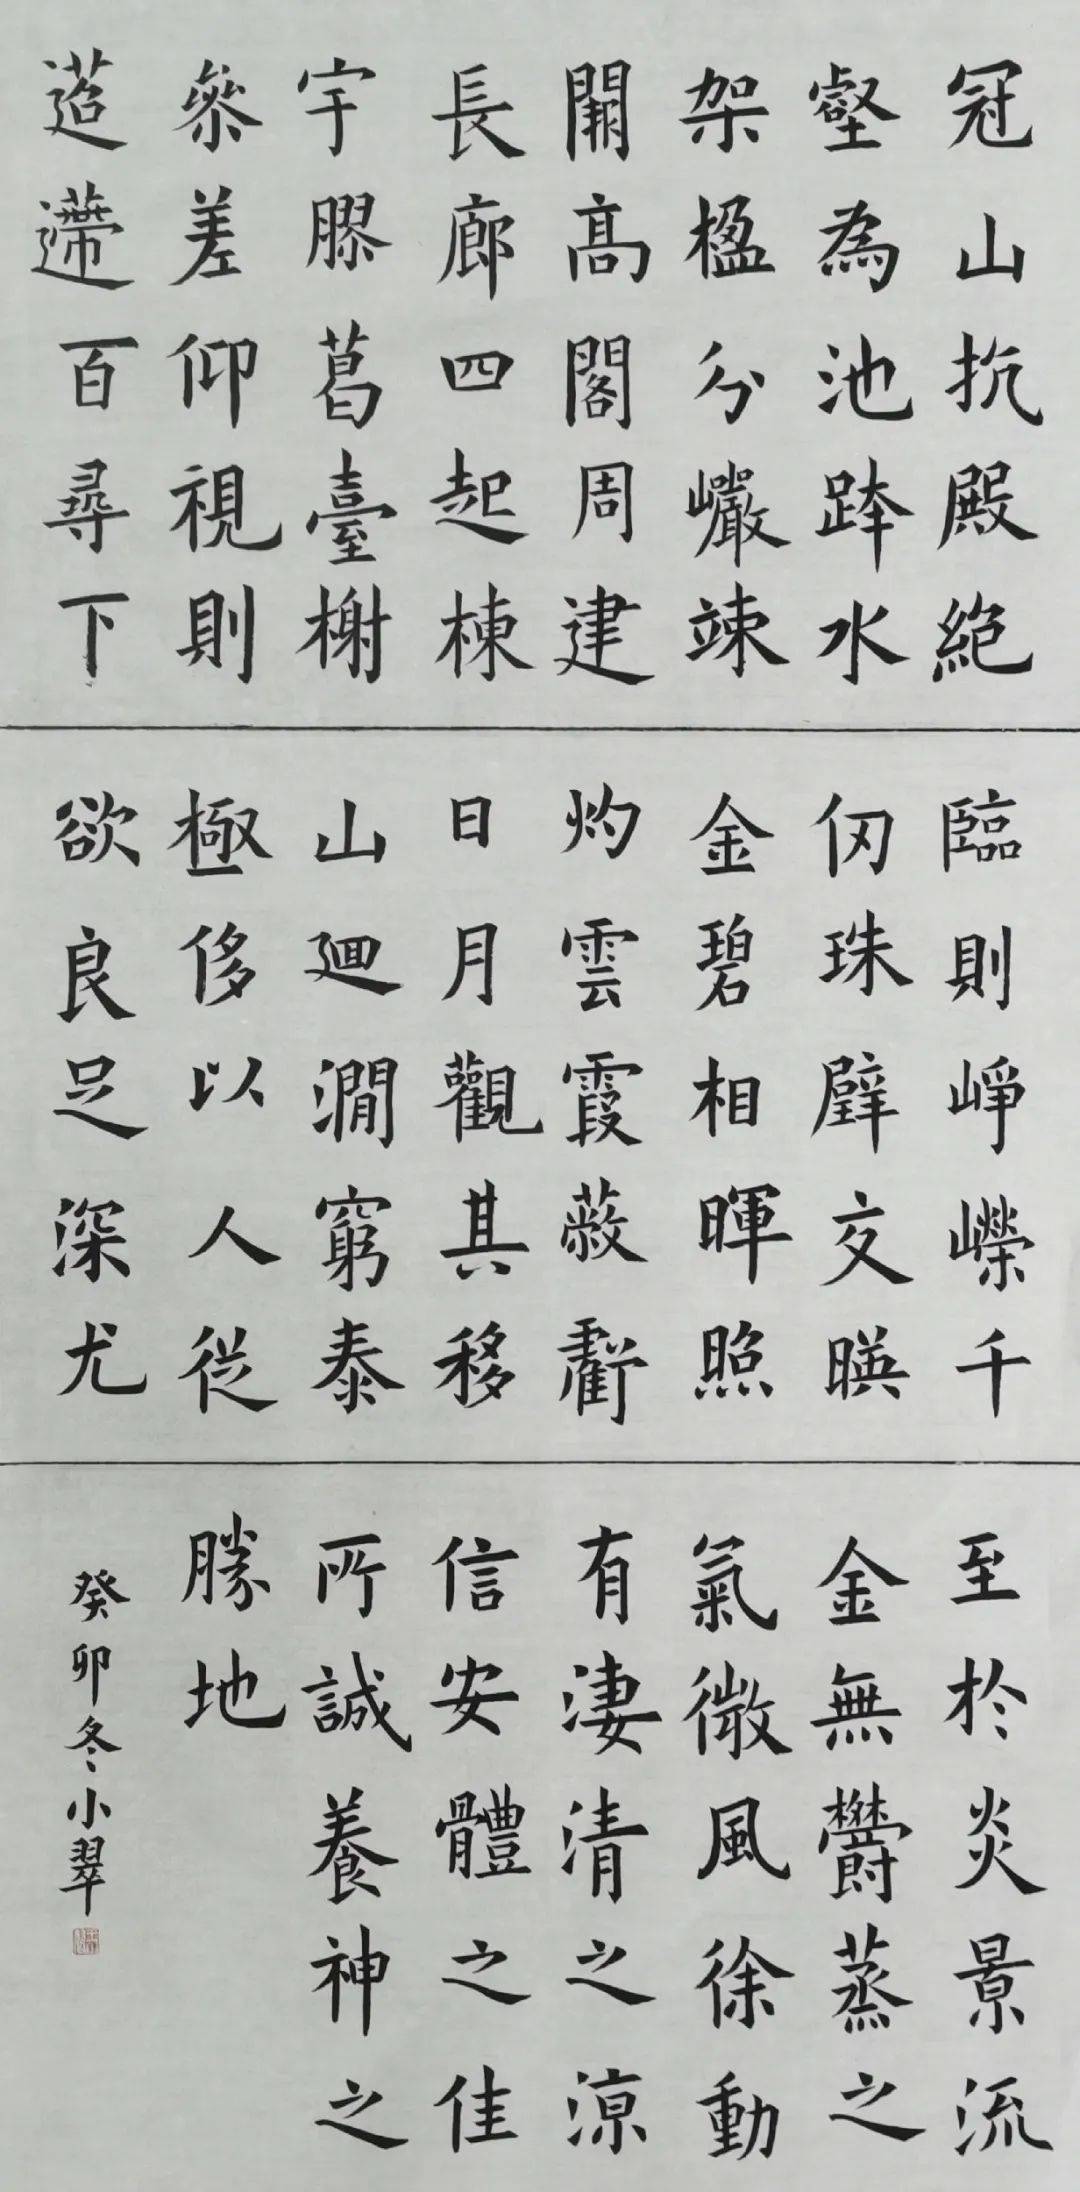 冠山抗殿絶
壑為池跨水
架楹分巖竦
闕高閣周建
長廊四起棟
宇膠葛臺榭
參差仰視則
迢遰百尋下
臨則崢嶸千
仞珠璧交暎
金碧相暉照
灼雲霞蔽虧
日月觀其移
山迴澗窮泰
極侈以人從
欲良足深尤
至於炎景流
金無鬱蒸之
氣微風徐動
有淒清之涼
信安體之佳
所誠養神之
勝地
癸卯冬小翠